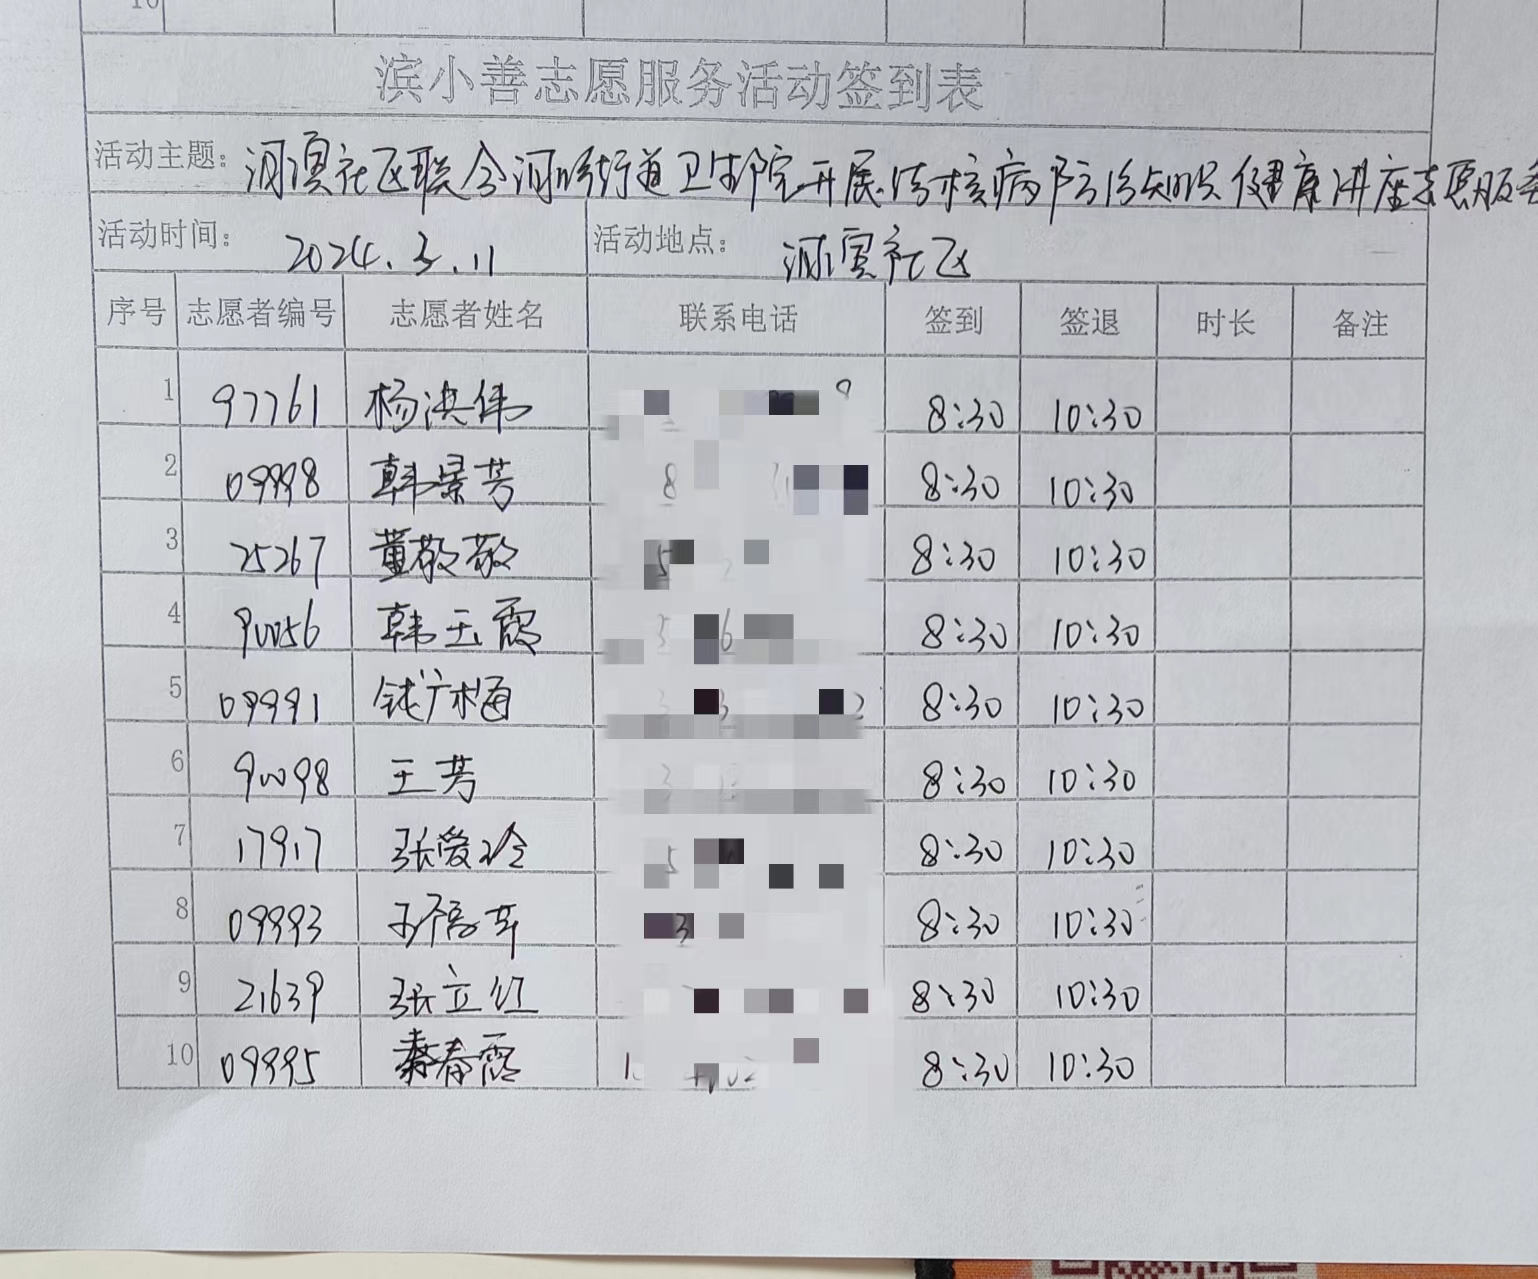 10
滨小善志愿服务活动签到表
活动主题: 河滨社区联合河畔街道卫生院开展结核病防治知识健康讲座志愿服务
活动时间: 2024.3.11 活动地点: 河滨社区
序号 志愿者编号 志愿者姓名 联系电话 签到 签退 时长 备注
1 97761 杨洪伟 8:30 10:30
2 09998 韩景芳 8:30 10:30
3 25267 董敬敬 8:30 10:30
4 90056 韩玉霞 8:30 10:30
5 09991 8:30 10:30
6 90098 王芳 8:30 10:30
7 17917 张爱玲 8:30 10:30
8 09993 8:30 10:30
9 21639 张立红 8:30 10:30
10 09995 秦春霞 8:30 10:30